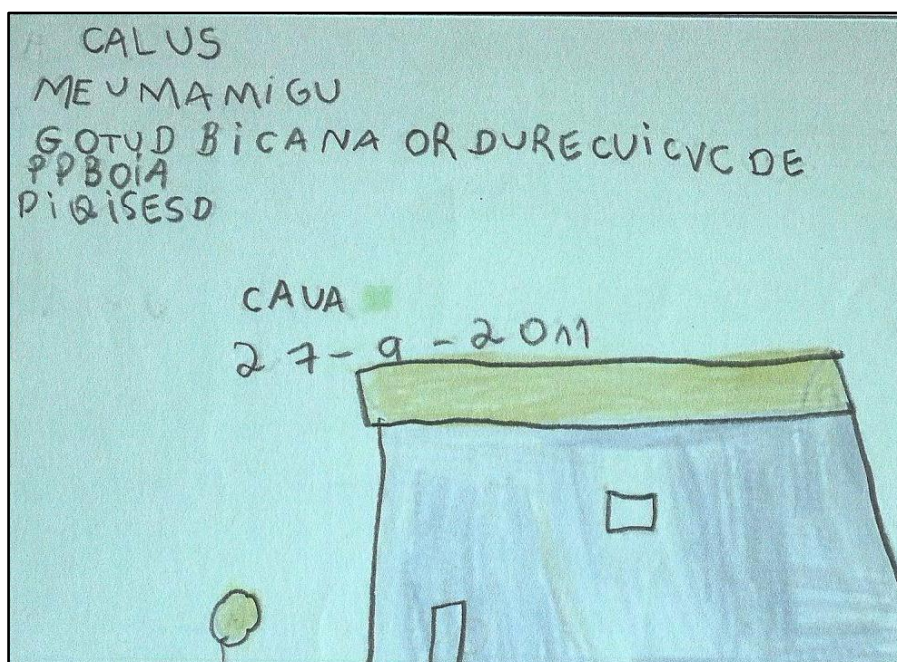 CALUS
MEUMAMiGU
GOTUD BiCANA ORDURECUiCVC DE
PPBOiA
DiQiSESD
CAUA
27-9-2011